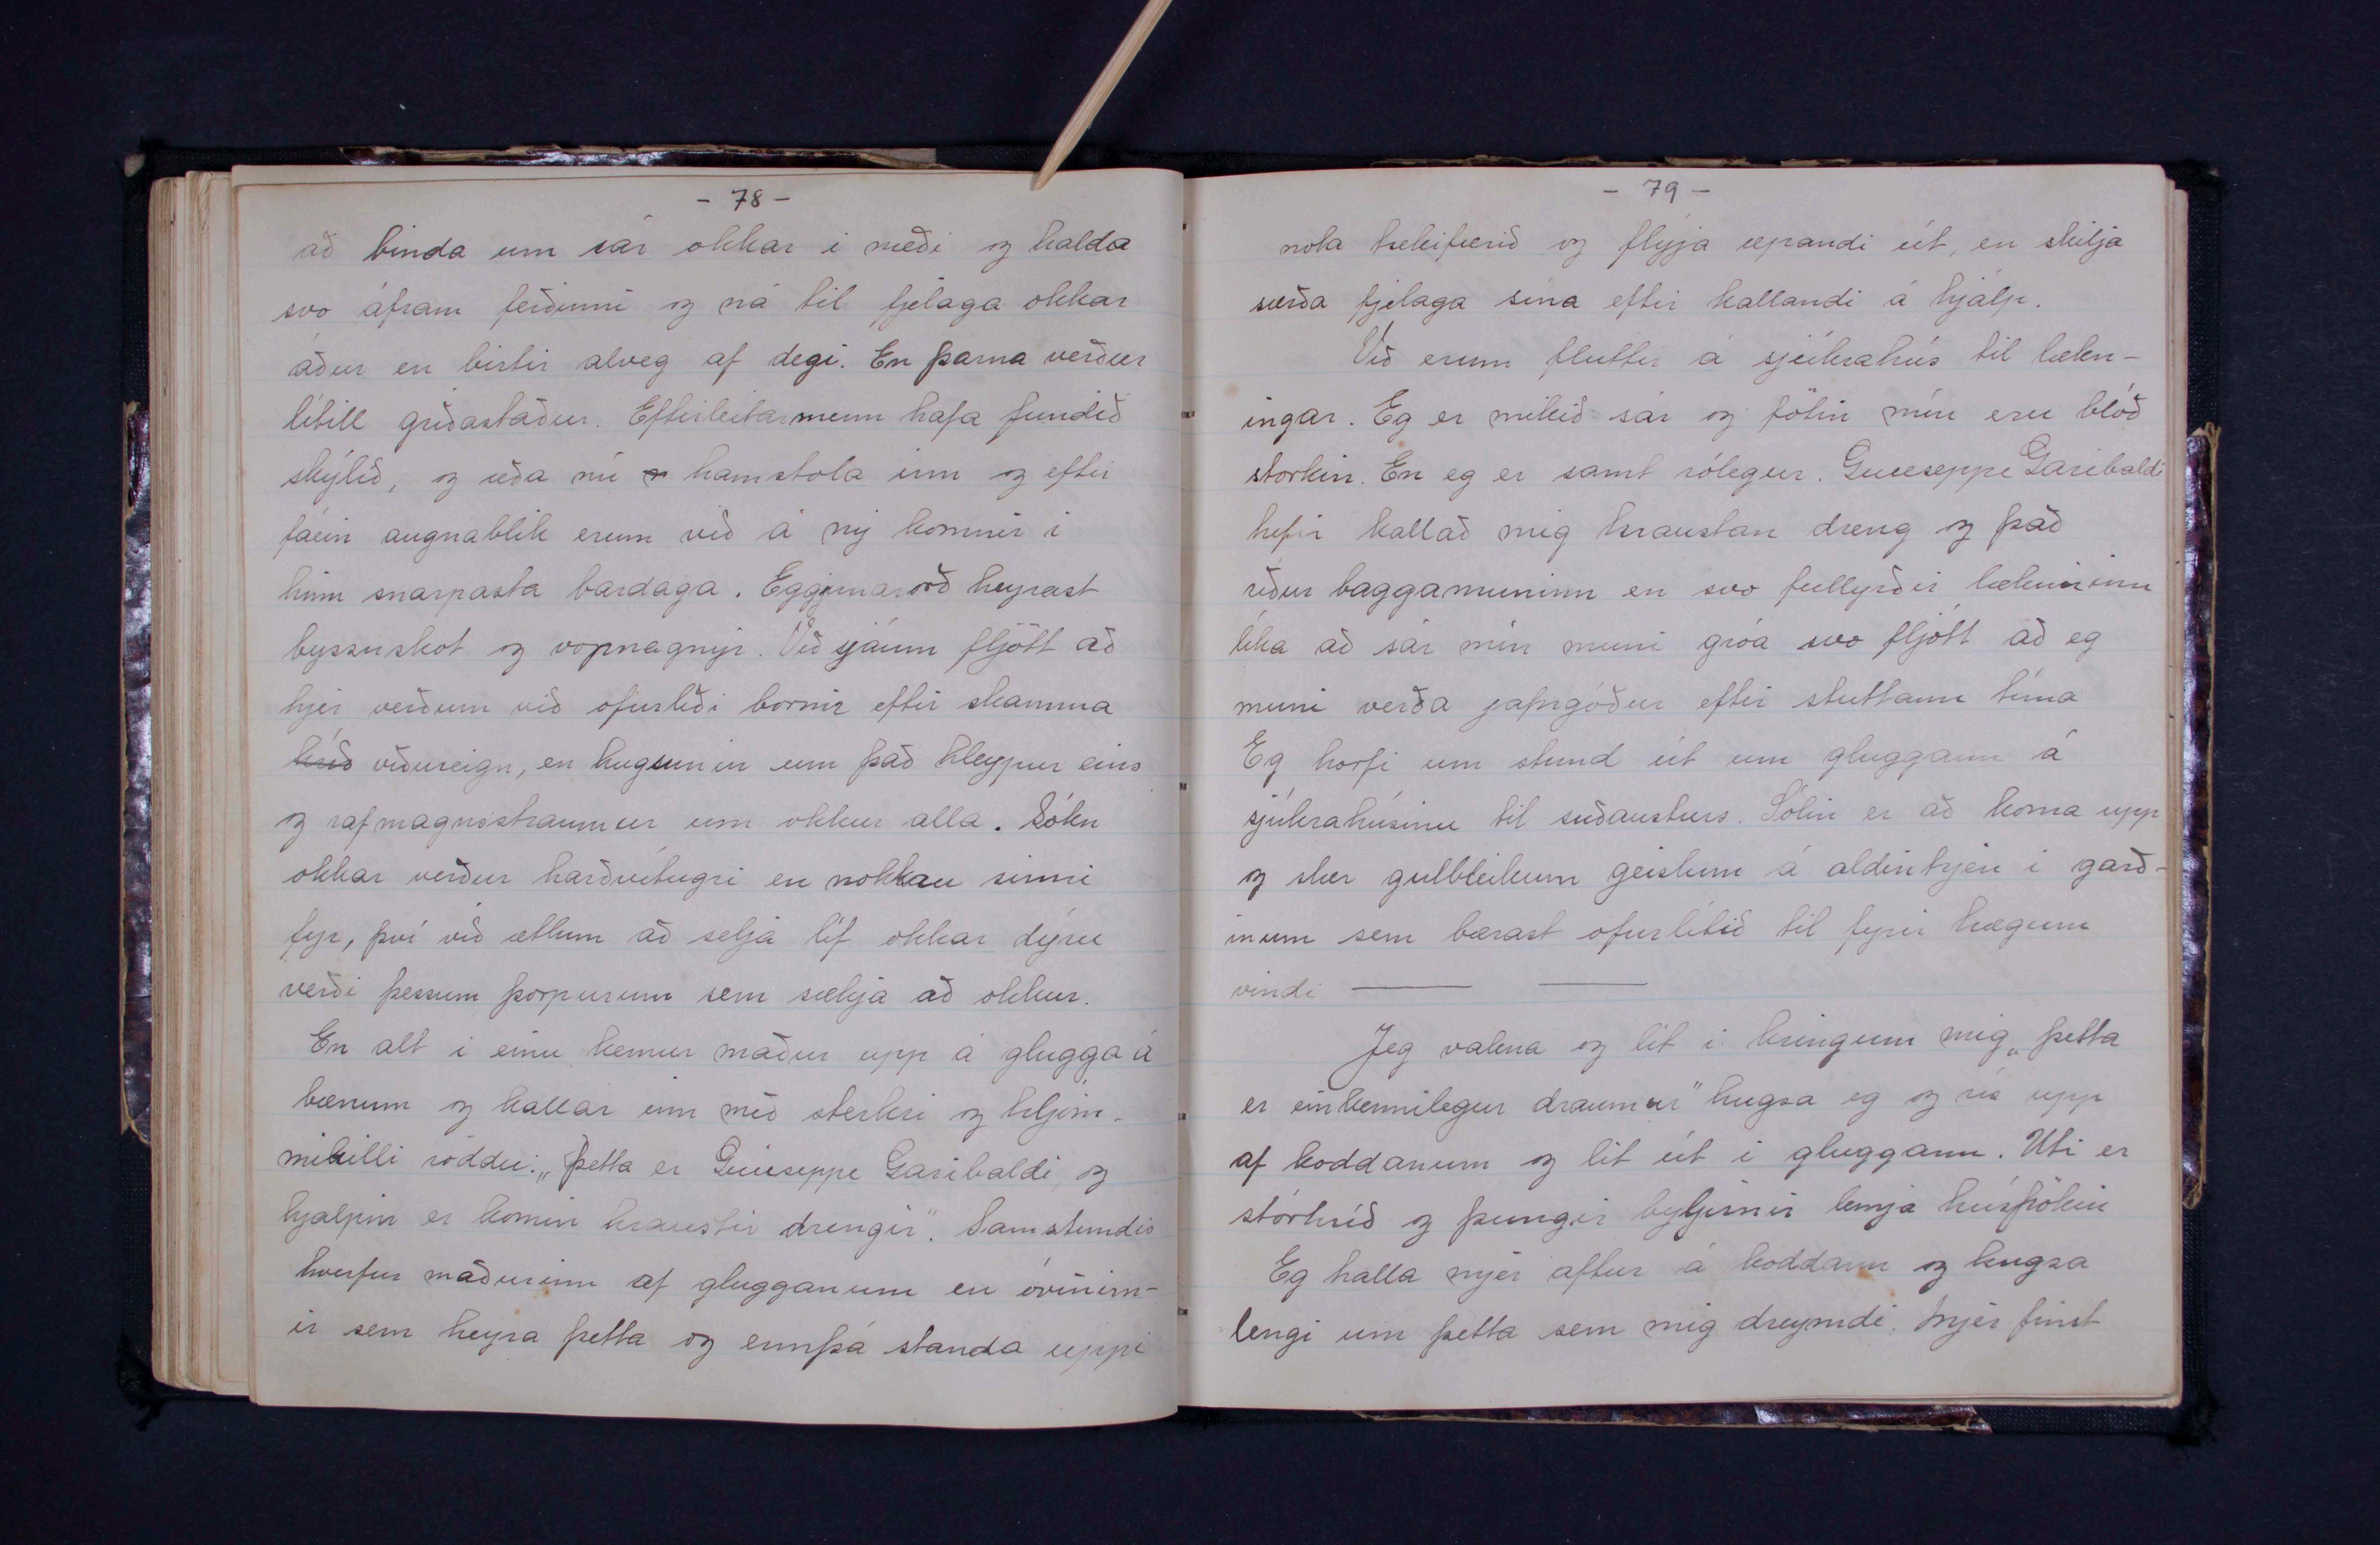 - 78 -
að binda um sár okkar í næði og halda
svo áfram ferðinni og ná til fjelaga okkar
áður en birtir alveg af degi. En þarna verður
lítill griðastaður. Eftirleitarmenn hafa fundið
skýlið, og æða nú og hamstola inn og eftir
fáein augnablik erum við á ný komnir í
hinn snarpasta bardaga. Eggjunarorð heyrast
byssuskot og vopnagnýr. Við sjáum fljótt að
hjer verðum við ofurliði bornir eftir skamma
hríð viðureign, en hugsunin um það hleypur eins
og rafmagnsstraumur um okkur alla. Sókn
okkar verður harðvítugri en nokkru sinni
fyr, því við ætlum að selja líf okkar dýru
verði þessum þorpurum sem sækja að okkur.
En alt í einu kemur maður upp á glugga á
bænum og kallar inn með sterkri og hljóm-
mikilli röddu: „Þetta er Guiseppe Garibaldi, og
hjálpin er komin hraustir drengir". Samstundis
hverfur maðurinn af glugganum en óvinirn-
ir sem heyra þetta og ennþá standa uppi
- 79 -
nota tækifærið og flýja æpandi út, en skilja
særða fjelaga sína eftir kallandi á hjálp.
Við erum fluttir á sjúkrahús til lækn-
ingar. Eg er mikið sár og fötin mín eru blóð
storkin. En eg er samt rólegur. Guiseppe Garibaldi
hefir kallað mig hraustan dreng og það
ríður baggamuninn en svo fullyrðir læknirinn
líka að sár mín muni gróa svo fljótt að eg
muni verða jafngóður eftir stuttann tíma
Eg horfi um stund út um gluggann á
sjúkrahúsinu til suðausturs. Sólin er að koma upp
og slær gulbleikum geislum á aldintrjen í garð-
inum sem bærast ofurlítið til fyrir hægum
vindi — —
Jeg vakna og lít í kringum mig „þetta
er einkennilegur draumur" hugsa eg og rís upp
af koddanum og lít út í gluggann. Úti er
stórhríð og þungir byljirnir lemja húsþökin
Eg halla mjer aftur á koddann og hugsa
lengi um þetta sem mig dreymdi. Mjer finst